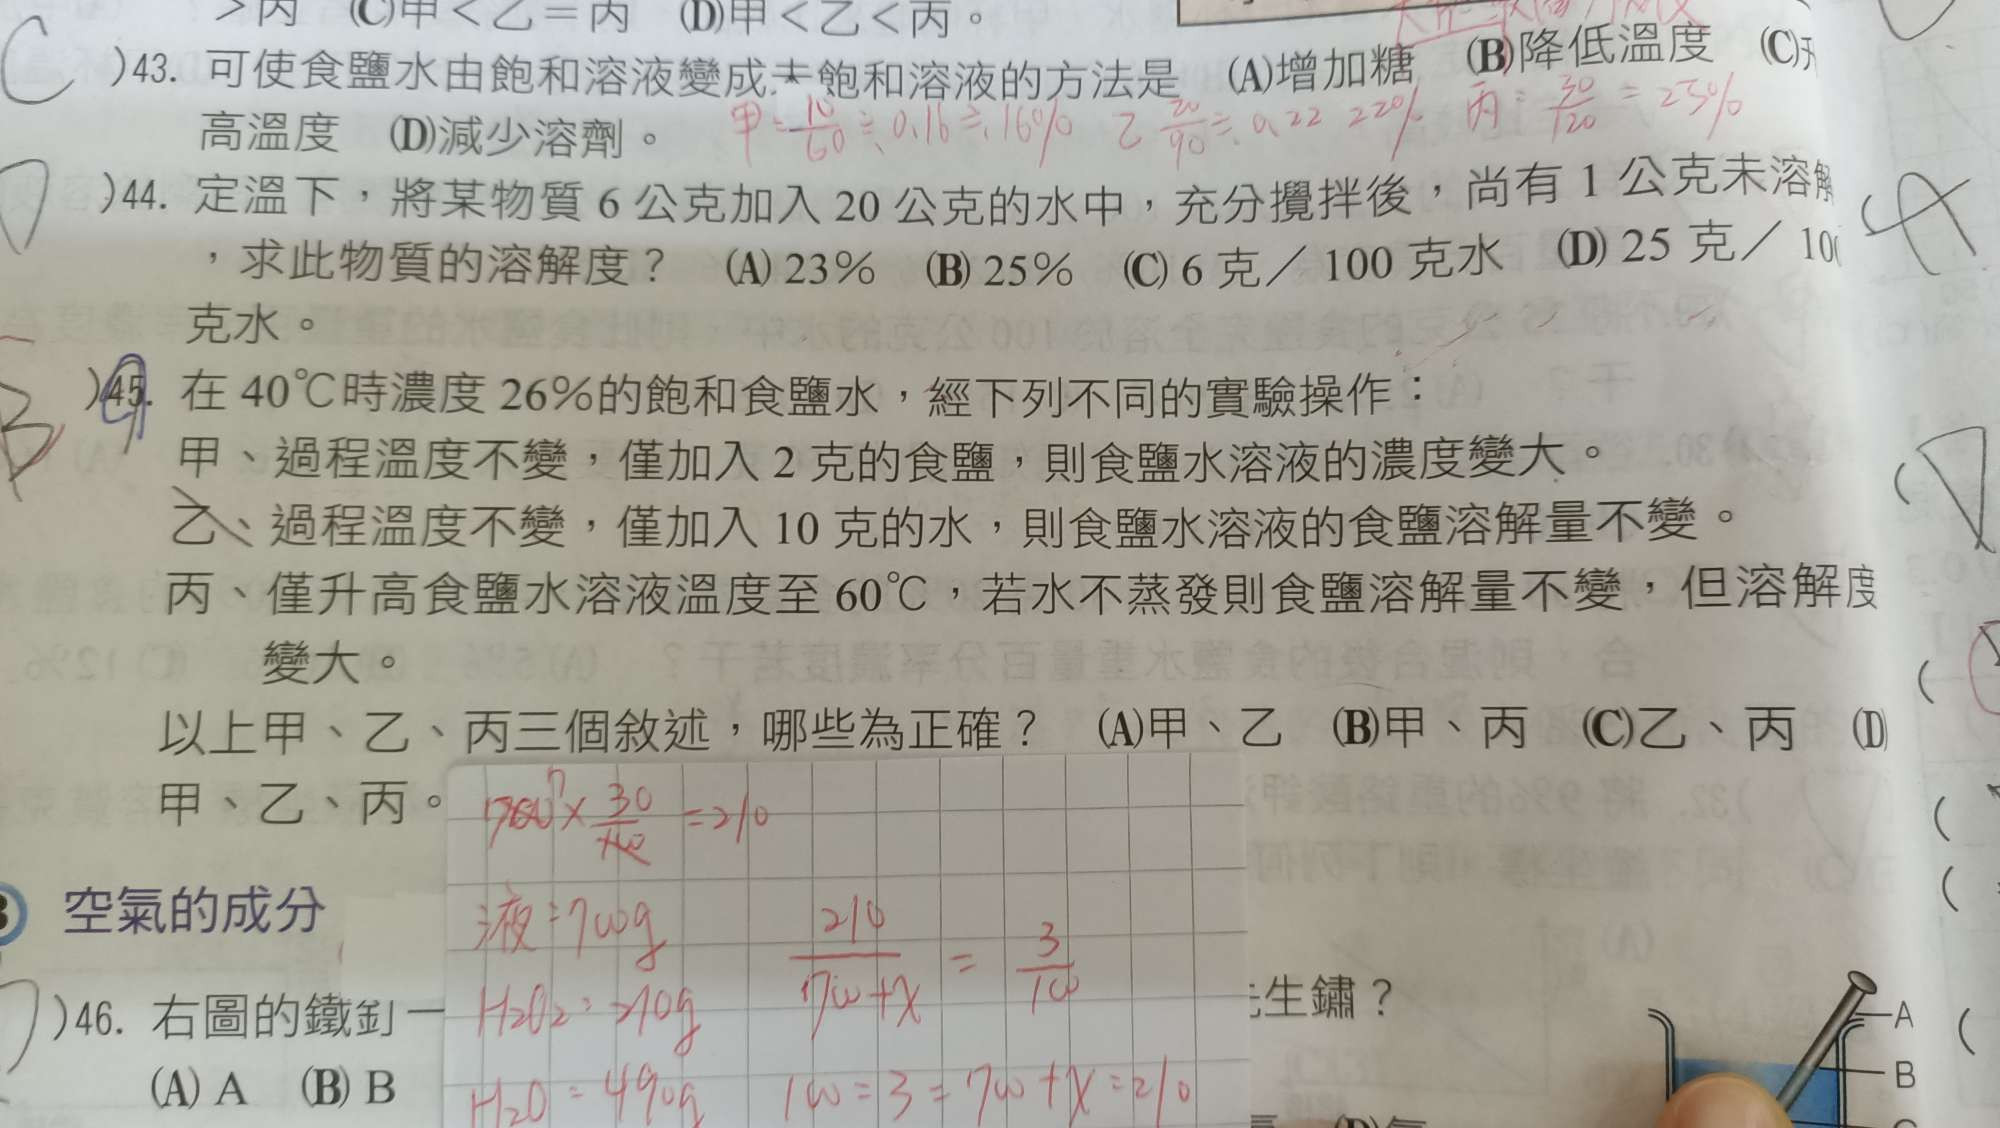 >丙 (C)甲<乙=丙 (D)甲<乙<丙。
C )43. 可使食鹽水由飽和溶液變成未飽和溶液的方法是 (A)增加糖 (B)降低溫度 (C)升
高溫度 (D)減少溶劑。
甲=10/60≒0.16≒16% 乙 20/90≒0.22 22% 丙=30/120=25%
D )44. 定溫下,將某物質 6 公克加入 20 公克的水中,充分攪拌後,尚有 1 公克未溶解
,求此物質的溶解度? (A) 23% (B) 25% (C) 6 克/100 克水 (D) 25 克/100
克水。
B )45. 在 40℃時濃度 26%的飽和食鹽水,經下列不同的實驗操作:
甲、過程溫度不變,僅加入 2 克的食鹽,則食鹽水溶液的濃度變大。
乙、過程溫度不變,僅加入 10 克的水,則食鹽水溶液的食鹽溶解量不變。
丙、僅升高食鹽水溶液溫度至 60℃,若水不蒸發則食鹽溶解量不變,但溶解度
變大。
以上甲、乙、丙三個敘述,哪些為正確? (A)甲、乙 (B)甲、丙 (C)乙、丙 (D)
甲、乙、丙。
=210
液=700g
210/700+X = 3/100
H2O2=210g
H2O=490g
100=3=700+X=210
空氣的成分
)46. 右圖的鐵釘一
生鏽?
(A) A (B) B
A
B